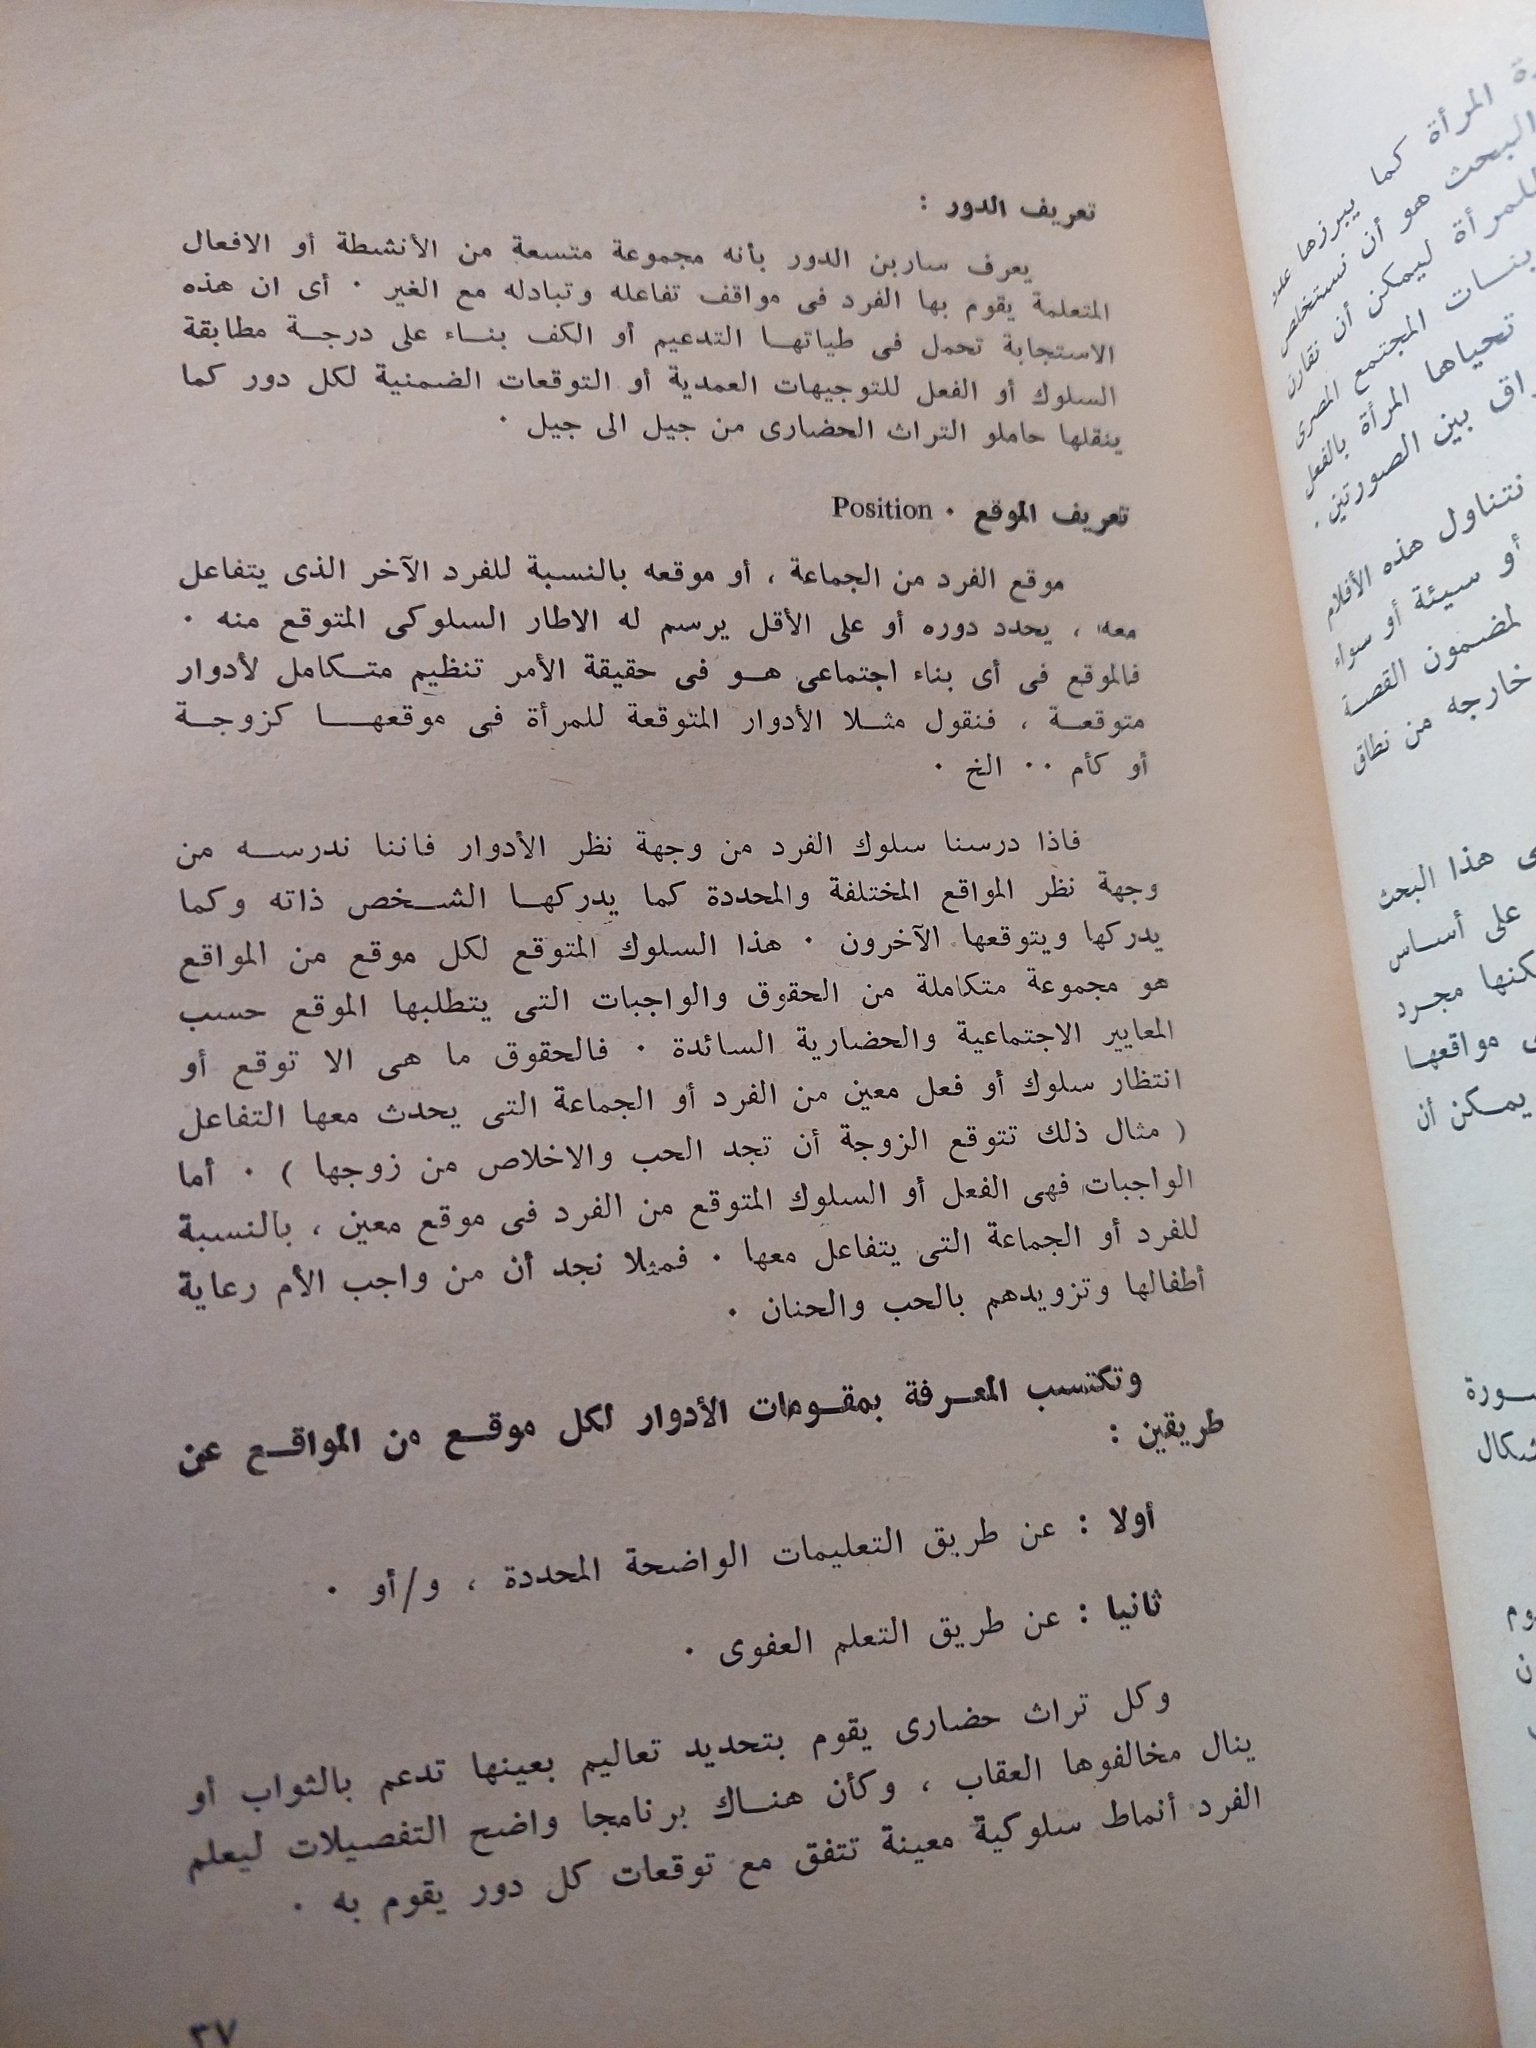 تعريف الدور :
يعرف ساربن الدور بأنه مجموعة متسعة من الأنشطة أو الافعال
المتعلمة يقوم بها الفرد فى مواقف تفاعله وتبادله مع الغير ٠ أى ان هذه
الاستجابة تحمل فى طياتها التدعيم أو الكف بناء على درجة مطابقة
السلوك أو الفعل للتوجيهات العمدية أو التوقعات الضمنية لكل دور كما
ينقلها حاملو التراث الحضارى من جيل الى جيل ٠
تعريف الموقع ٠ Position
موقع الفرد من الجماعة ، أو موقعه بالنسبة للفرد الآخر الذى يتفاعل
معه ، يحدد دوره أو على الأقل يرسم له الاطار السلوكى المتوقع منه ٠
فالموقع فى أى بناء اجتماعى هو فى حقيقة الأمر تنظيم متكامل لأدوار
متوقعة ، فنقول مثلا الأدوار المتوقعة للمرأة فى موقعها كزوجة
أو كأم ٠٠ الخ ٠
فاذا درسنا سلوك الفرد من وجهة نظر الأدوار فاننا ندرسه من
وجهة نظر المواقع المختلفة والمحددة كما يدركها الشخص ذاته وكما
يدركها ويتوقعها الآخرون ٠ هذا السلوك المتوقع لكل موقع من المواقع
هو مجموعة متكاملة من الحقوق والواجبات التى يتطلبها الموقع حسب
المعايير الاجتماعية والحضارية السائدة ٠ فالحقوق ما هى الا توقع أو
انتظار سلوك أو فعل معين من الفرد أو الجماعة التى يحدث معها التفاعل
( مثال ذلك تتوقع الزوجة أن تجد الحب والاخلاص من زوجها ) ٠ أما
الواجبات فهى الفعل أو السلوك المتوقع من الفرد فى موقع معين ، بالنسبة
للفرد أو الجماعة التى يتفاعل معها ٠ فمثلا نجد أن من واجب الأم رعاية
أطفالها وتزويدهم بالحب والحنان ٠
وتكتسب المعرفة بمقومات الأدوار لكل موقع من المواقع عن
طريقين :
أولا : عن طريق التعليمات الواضحة المحددة ، و/أو ٠
ثانيا : عن طريق التعلم العفوى ٠
وكل تراث حضارى يقوم بتحديد تعاليم بعينها تدعم بالثواب أو
ينال مخالفوها العقاب ، وكأن هناك برنامجا واضح التفصيلات ليعلم
الفرد أنماط سلوكية معينة تتفق مع توقعات كل دور يقوم به ٠
٣٧
المرأة كما يبرزها
البحث هو أن نستخلص
للمرأة ليمكن أن نقارن
بنات المجتمع المصرى
تحياها المرأة بالفعل
بين الصورتين ٠
نتناول هذه الأفلام
أو سيئة أو سواء
لمضمون القصة
خارجه من نطاق
هذا البحث
على أساس
مجرد
مواقعها
يمكن أن